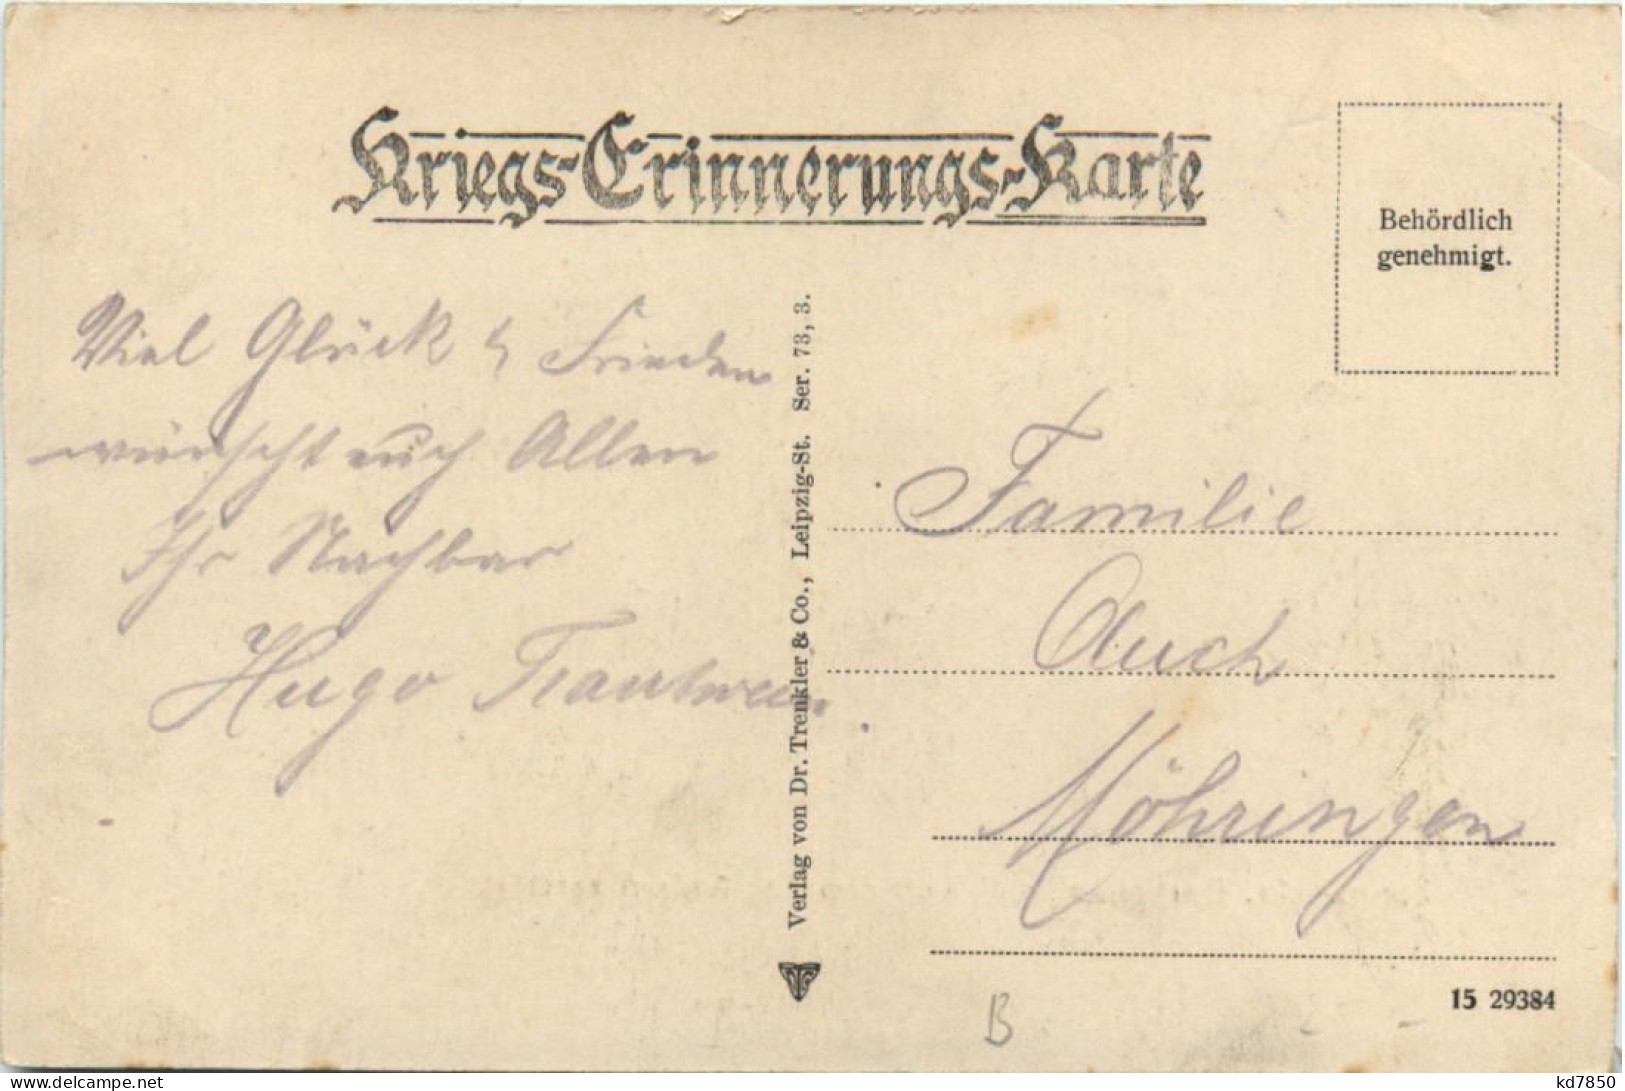 Kriegs-Erinnerungs-Karte
Behördlich
genehmigt.
Viel Glück & Frieden
wünscht euch Allen
Ihr Nachbar
Hugo Trautwein
Verlag von Dr. Trenkler & Co., Leipzig-St. Ser. 73, 3.
Familie
Auch
Möhringen
15 29384
B
delcampe.net
kd7850